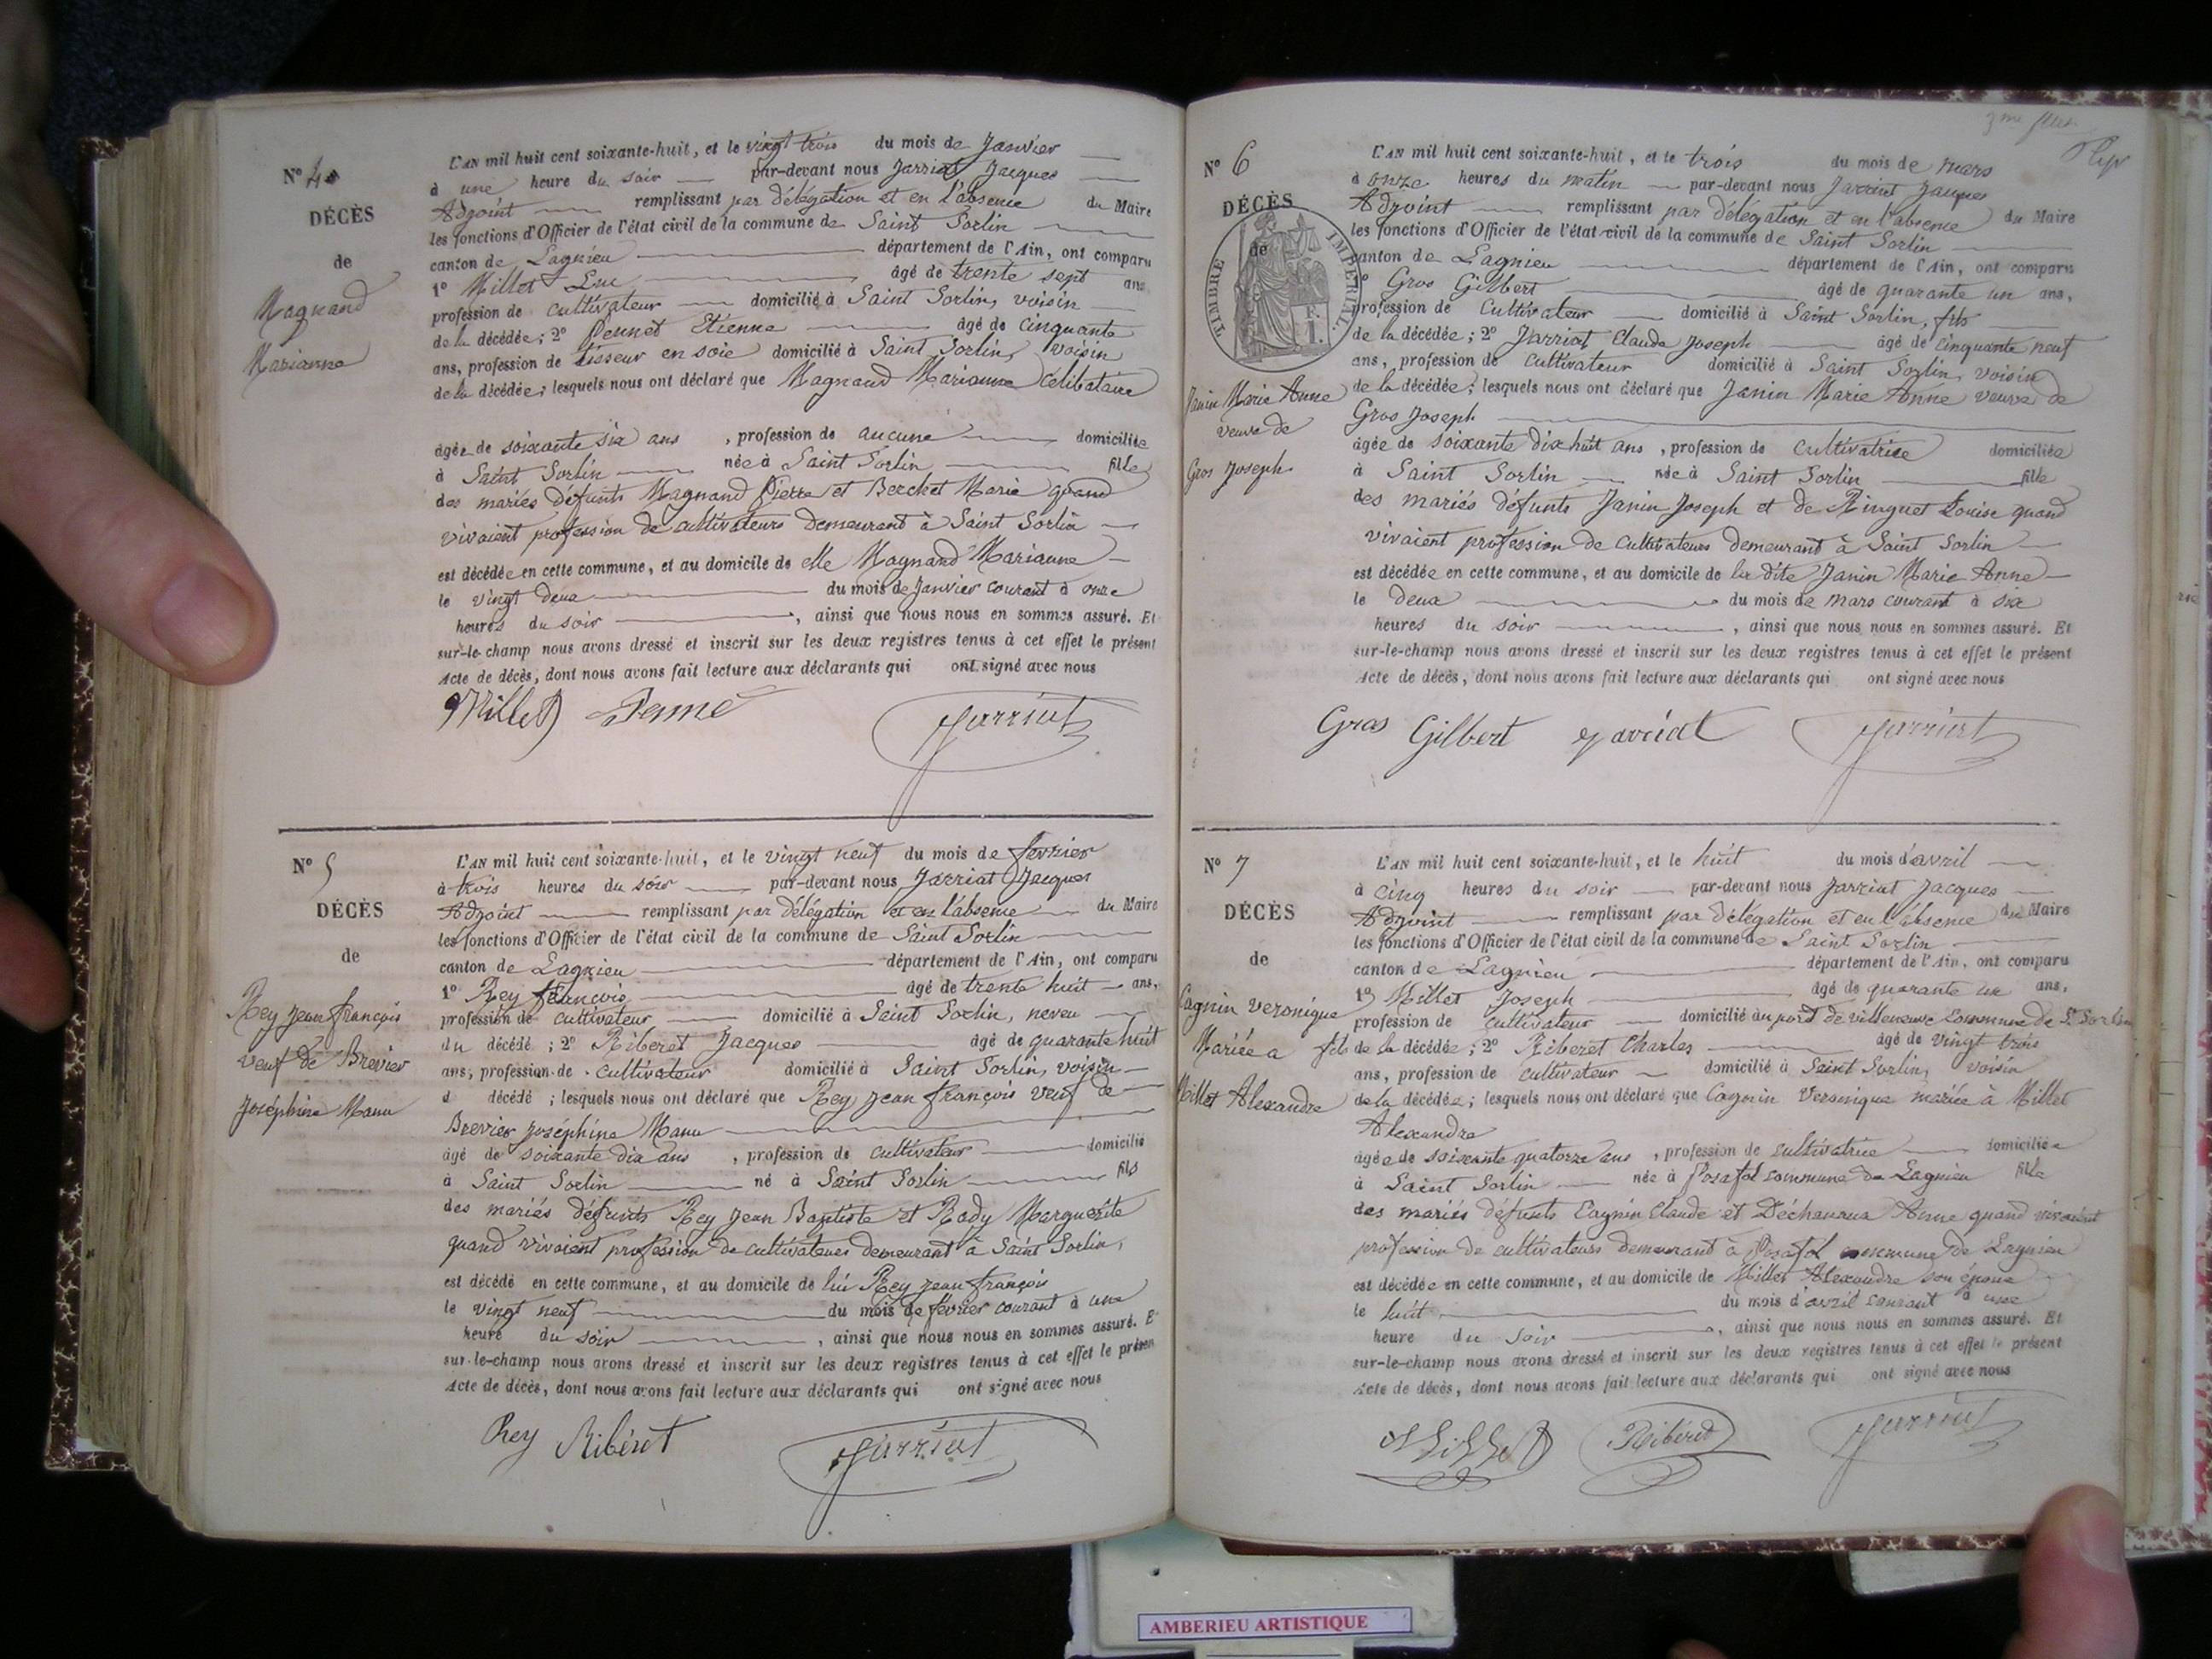 N° 4
DÉCÈS
de
Magnand
Marianne
L'AN mil huit cent soixante-huit, et le vingt trois du mois de Janvier
à une heure du soir par-devant nous Jarriat Jacques
Adjoint remplissant par délégation et en l'absence du Maire
les fonctions d'Officier de l'état civil de la commune de Saint Sorlin
canton de Lagnieu département de l'Ain, ont comparu
1° Millet Luc âgé de trente sept ans
profession de cultivateur domicilié à Saint Sorlin, voisin
de la décédée; 2° Pennet Etienne âgé de cinquante
ans, profession de tisseur en soie domicilié à Saint Sorlin, voisin
de la décédée; lesquels nous ont déclaré que Magnand Marianne Célibataire
âgée de soixante six ans, profession de aucune domiciliée
à Saint Sorlin née à Saint Sorlin fille
des mariés défunts Magnand Pierre et Berchet Marie quand
vivaient profession de cultivateurs demeurant à Saint Sorlin
est décédée en cette commune, et au domicile de elle Magnand Marianne
le vingt deux du mois de Janvier courant à onze
heures du soir, ainsi que nous nous en sommes assuré. Et
sur-le-champ nous avons dressé et inscrit sur les deux registres tenus à cet effet le présent
acte de décès, dont nous avons fait lecture aux déclarants qui ont signé avec nous
Millet Penné Jarriat
N° 5
DÉCÈS
de
Rey Jean françois
veuf de Brevier
Joséphine Manu
L'AN mil huit cent soixante-huit, et le vingt neuf du mois de fevrier
à trois heures du soir par-devant nous Jarriat Jacques
Adjoint remplissant par délégation et en l'absence du Maire
les fonctions d'Officier de l'état civil de la commune de Saint Sorlin
canton de Lagnieu département de l'Ain, ont comparu
1° Rey françois âgé de trente huit ans,
profession de cultivateur domicilié à Saint Sorlin, neveu
du décédé; 2° Riberet Jacques âgé de quarante huit
ans, profession de cultivateur domicilié à Saint Sorlin, voisin
d décédé; lesquels nous ont déclaré que Rey Jean françois veuf de
Brevier Joséphine Manu
âgé de soixante dix ans, profession de cultivateur domicilié
à Saint Sorlin né à Saint Sorlin fils
des mariés défunts Rey Jean Baptiste et Rody Marguerite
quand vivaient profession de cultivateurs demeurant à Saint Sorlin,
est décédé en cette commune, et au domicile de lui Rey Jean françois
le vingt neuf du mois de fevrier courant à une
heure du soir, ainsi que nous nous en sommes assuré. E
sur-le-champ nous avons dressé et inscrit sur les deux registres tenus à cet effet le présen
acte de décès, dont nous avons fait lecture aux déclarants qui ont signé avec nous
Rey Ribéret Jarriat
3me
N° 6
DÉCÈS
de
TIMBRE IMPÉRIAL
Janin Marie Anne
veuve de
Gros Joseph
L'AN mil huit cent soixante-huit, et le trois du mois de mars
à onze heures du matin par-devant nous Jarriat Jacques
Adjoint remplissant par délégation et en l'absence du Maire
les fonctions d'Officier de l'état civil de la commune de Saint Sorlin
canton de Lagnieu département de l'Ain, ont comparu
Gros Gilbert âgé de quarante un ans,
profession de Cultivateur domicilié à Saint Sorlin, fils
de la décédée; 2° Jarriat Claude Joseph âgé de cinquante neuf
ans, profession de Cultivateur domicilié à Saint Sorlin, voisin
de la décédée; lesquels nous ont déclaré que Janin Marie Anne veuve de
Gros Joseph
âgée de soixante dix huit ans, profession de Cultivatrice domiciliée
à Saint Sorlin née à Saint Sorlin fille
des mariés défunts Janin Joseph et de Ringuet Louise quand
vivaient profession de cultivateurs demeurant à Saint Sorlin
est décédée en cette commune, et au domicile de la dite Janin Marie Anne
le deux du mois de mars courant à six
heures du soir, ainsi que nous nous en sommes assuré. Et
sur-le-champ nous avons dressé et inscrit sur les deux registres tenus à cet effet le présent
acte de décès, dont nous avons fait lecture aux déclarants qui ont signé avec nous
Gras Gilbert Jarriat Jarriat
N° 7
DÉCÈS
de
Cagnin Veronique
Mariée a
Millet Alexandre
L'AN mil huit cent soixante-huit, et le huit du mois d'avril
à cinq heures du soir par-devant nous Jarriat Jacques
Adjoint remplissant par délégation et en l'absence du Maire
les fonctions d'Officier de l'état civil de la commune de Saint Sorlin
canton de Lagnieu département de l'Ain, ont comparu
1° Millet Joseph âgé de quarante un ans,
profession de cultivateur domicilié au port de villeneuve Commune de St Sorlin
fils de la décédée; 2° Riberet Charles âgé de vingt trois
ans, profession de cultivateur domicilié à Saint Sorlin, voisin
de la décédée; lesquels nous ont déclaré que Cagnin Veronique mariée à Millet
Alexandre
âgée de soixante quatorze ans, profession de cultivatrice domiciliée
à Saint Sorlin née à Posafol commune de Lagnieu fille
des mariés défunts Cagnin Claude et Déchanaux Anne quand vivaient
profession de cultivateurs demeurant à Posafol commune de Lagnieu
est décédée en cette commune, et au domicile de Millet Alexandre son époux
le huit du mois d'avril courant à une
heure du soir, ainsi que nous nous en sommes assuré. Et
sur-le-champ nous avons dressé et inscrit sur les deux registres tenus à cet effet le présent
acte de décès, dont nous avons fait lecture aux déclarants qui ont signé avec nous
Millet Ribéret Jarriat
AMBERIEU ARTISTIQUE